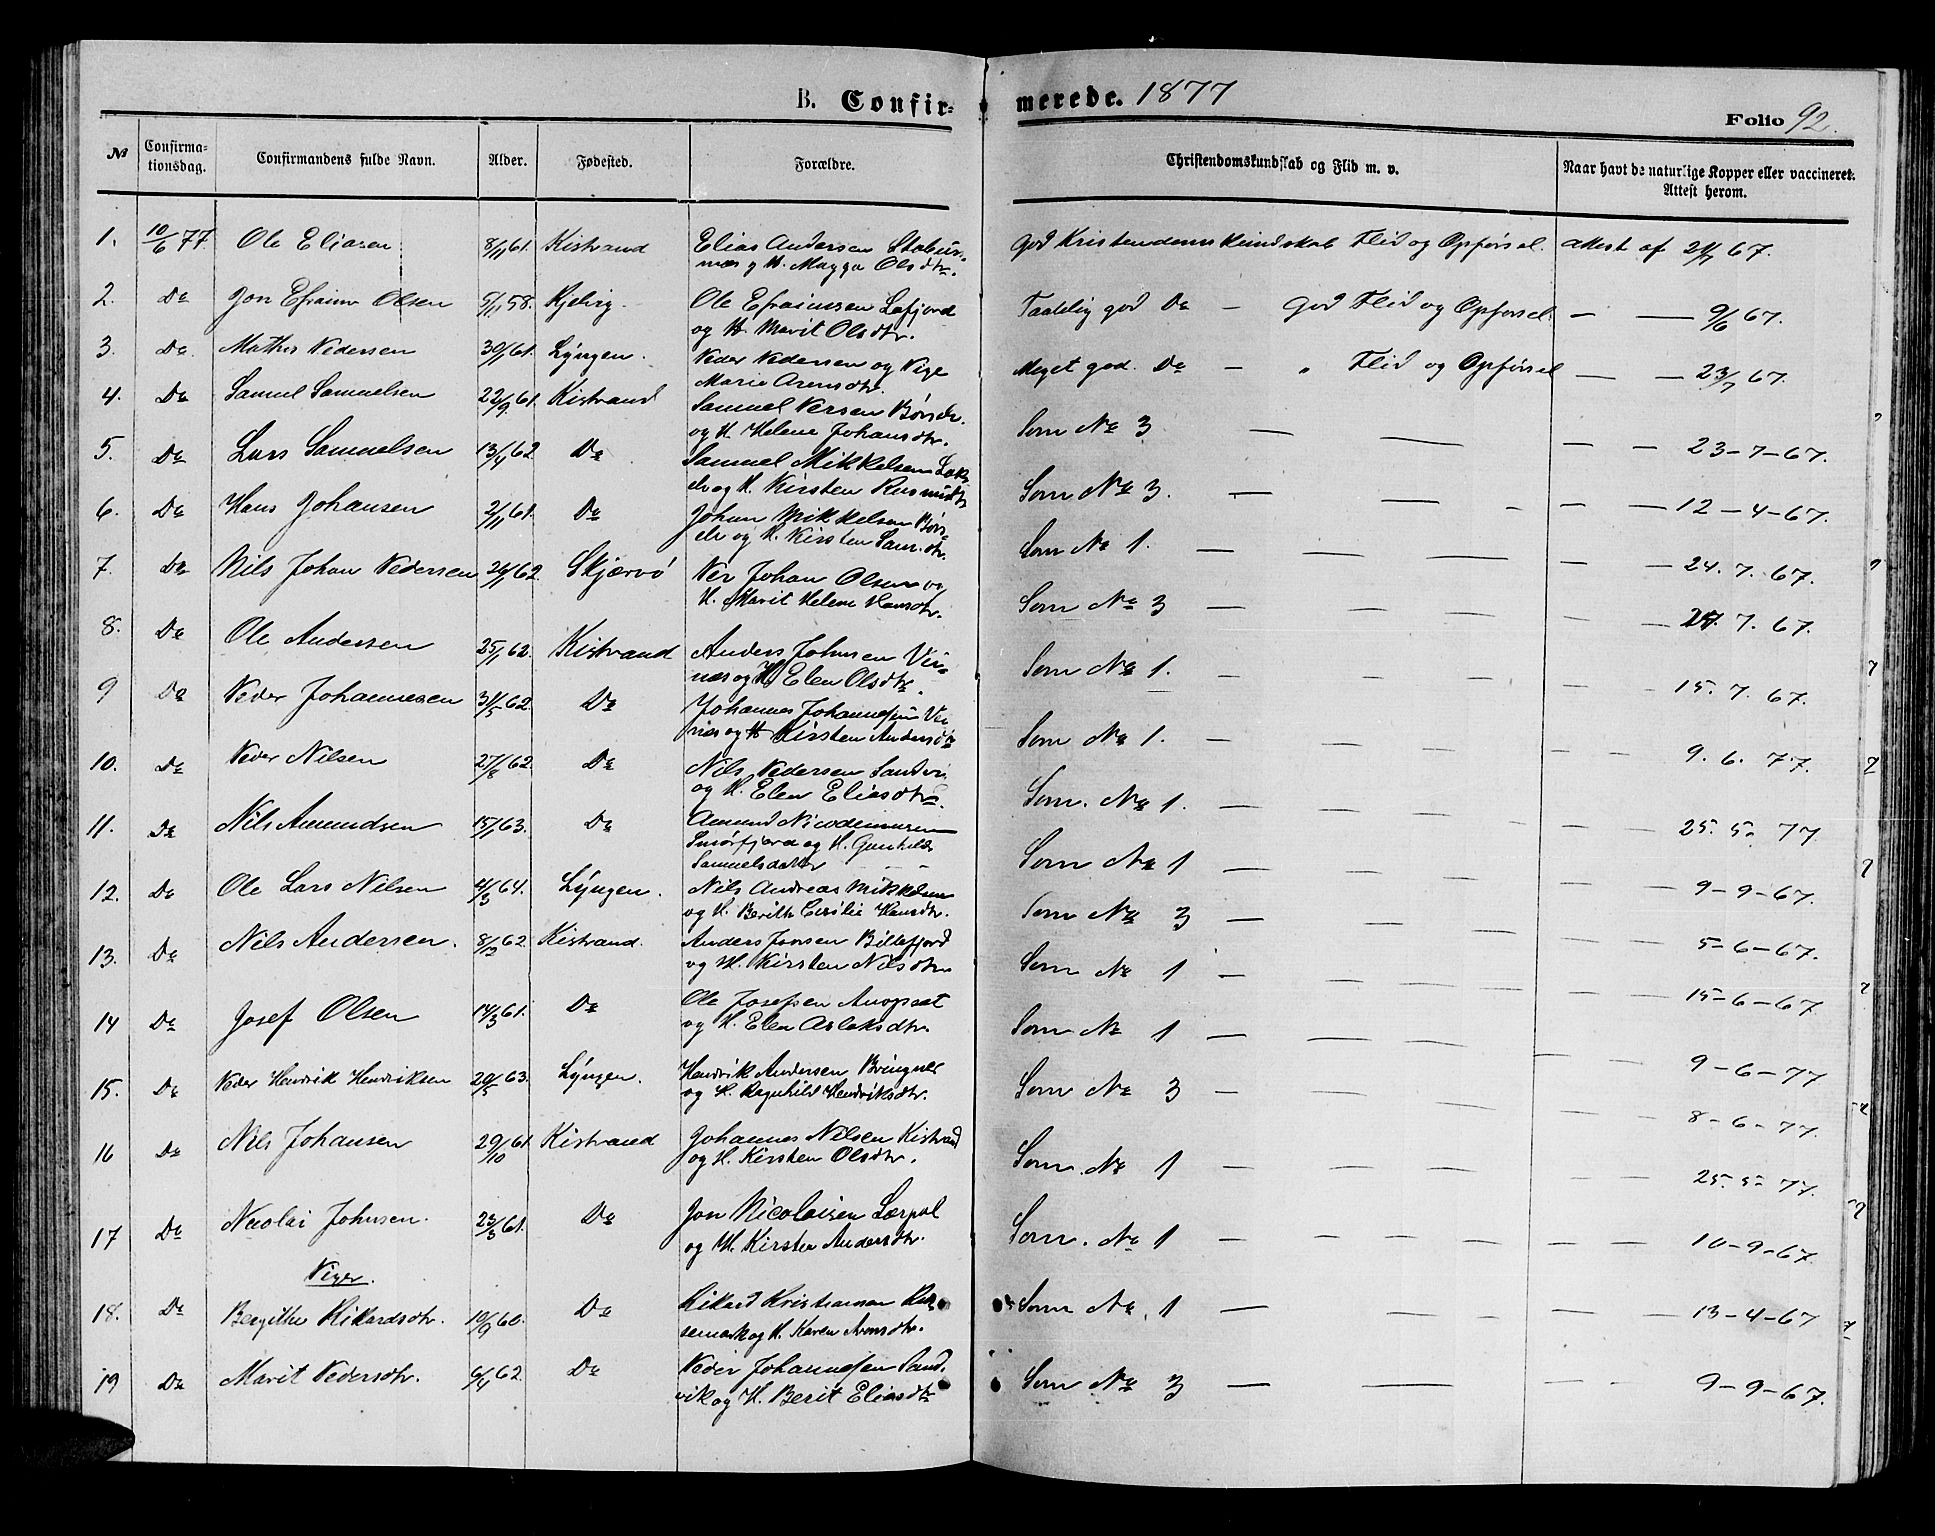 B. Confirmerede. 1877
Folio 92.
№ Confirmationsdag. Confirmandens fulde Navn. Alder. Fødested. Forældre. Christendomskundskab og Flid m. v. Naar havt de naturlige Kopper eller vaccineret. Attest herom.
1. 10/6 77 Ole Eliasen 8/11 61. Kistrand Elias Andersen Stabursnæs og H. Magga Olsdtr. God Kristendomskundskab Flid og Opførsel. Attest af 21/7 67.
2. Do Jon Efraim Olsen 5/11 58. Kjelvig. Ole Efraimsen Lafjord og H. Marit Olsdtr. Taalelig god Do — God Flid og Opførsel. — — 9/6 67.
3. Do Mathis Pedersen 30/1 61. Lyngen. Peder Pedersen og Pige Marie Arensdtr. Meget god. Do — " Flid og Opførsel — — 23/7 67.
4. Do Samuel Samuelsen 22/9 61. Kistrand Samuel Persen Børselv. og H. Helene Johansdtr. Som No 3 — — — — 23-7-67.
5. Do Lars Samuelsen 13/4 62 Do Samuel Mikkelsen Lakselv og H. Kirsten Rasmusdtr Som No 3. — — — — 12-4-67.
6. Do Hans Johansen 2/11 61. Do Johan Mikkelsen Børselv og H. Kirsten Sam.dtr. Som No 1. — — — — — 24. 7. 67.
7. Do Nils Johan Pedersen 26/1 62. Skjærvø Per Johan Olsen og H. Marit Helene Hansdtr. Som No 3 — — — — — 7. 67.
8. Do Ole Andersen 25/1 62. Kistrand Anders Johnsen Vienæs og H. Elen Olsdtr. Som No 1. — — — — — 15. 7. 67.
9 Do Peder Johannesen 31/5 62. Do Johannes Johannesen Vienæs og H Kirsten Andersdtr Som No 1. — — — — — 9. 6. 77.
10. Do Peder Nilsen 27/8 62. Do Nils Pedersen Sandvi og H. Elen Eliasdtr. Som. No 1. — — — — — 25. 5. 77
11. Do Nils Amundsen 15/1 63. Do Amund Nicodemusen Smørfjord og H. Gunhild Samuelsdatter Som No 1 — — — — — 9-9-67.
12. Do Ole Lars Nilsen 4/3 64. Lyngen. Nils Andreas Mikkelsen og H. Berith Cecilie Hansdtr. Som No 3 — — — — — 5-6-67.
13. Do Nils Andersen. 8/3 62. Kistrand. Anders Jonsen Billefjord og H. Kirsten Nilsdtr. Som No 1 — — — — — 15-6-67
14 Do Josef Olsen 14/3 61. Do Ole Josefsen Anopset og H. Elen Aslaksdtr. Som No 1 — — — — — 9-6-77
15. Do Peder Henrik Henriksen 20/5 63. Lyngen. Henrik Andersen Bringnes og H. Ragnhild Henriksdtr. Som No 3 — — — — — 8-6-77.
16 Do Nils Johansen 29/10 61. Kistrand Johannes Nilsen Kistrand og H. Kirsten Olsdtr. Som. No 1 — — — — — 25. 5- 77.
17 Do Nicolai Johnsen. 23/3 61. Do Jon Nicolaisen Lerpol og H. Kirsten Andersdtr. Som. No 1 — — — — — 10-9-67.
Piger.
18. Do Bergithe Rikardsdtr. 10/9 60. Do Rikard Kristiansen Russemark og H. Karen Aronsdtr. Som No. 1 — — — — — 13-4-67
19 Do Marit Pedersdtr. 6/4 62. Do Peder Johannesen Sandvik og H. Berit Eliasdtr Som No 3 — — — — — 9-9-67.